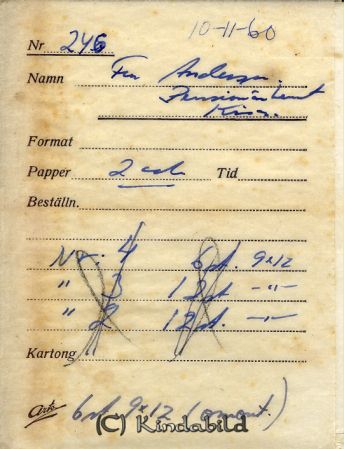 10-11-60
Nr 246
Namn Fru Andersson.
Pensionärshemmet
Kisa.
Format
Papper 2 ark Tid
Beställn.
Nr. 4 6 st. 9x12
" 3 12 st -"-
" 2 12 st. -"-
Kartong
Ark 6 st 9x12 (omont.)
(C) Kindabild